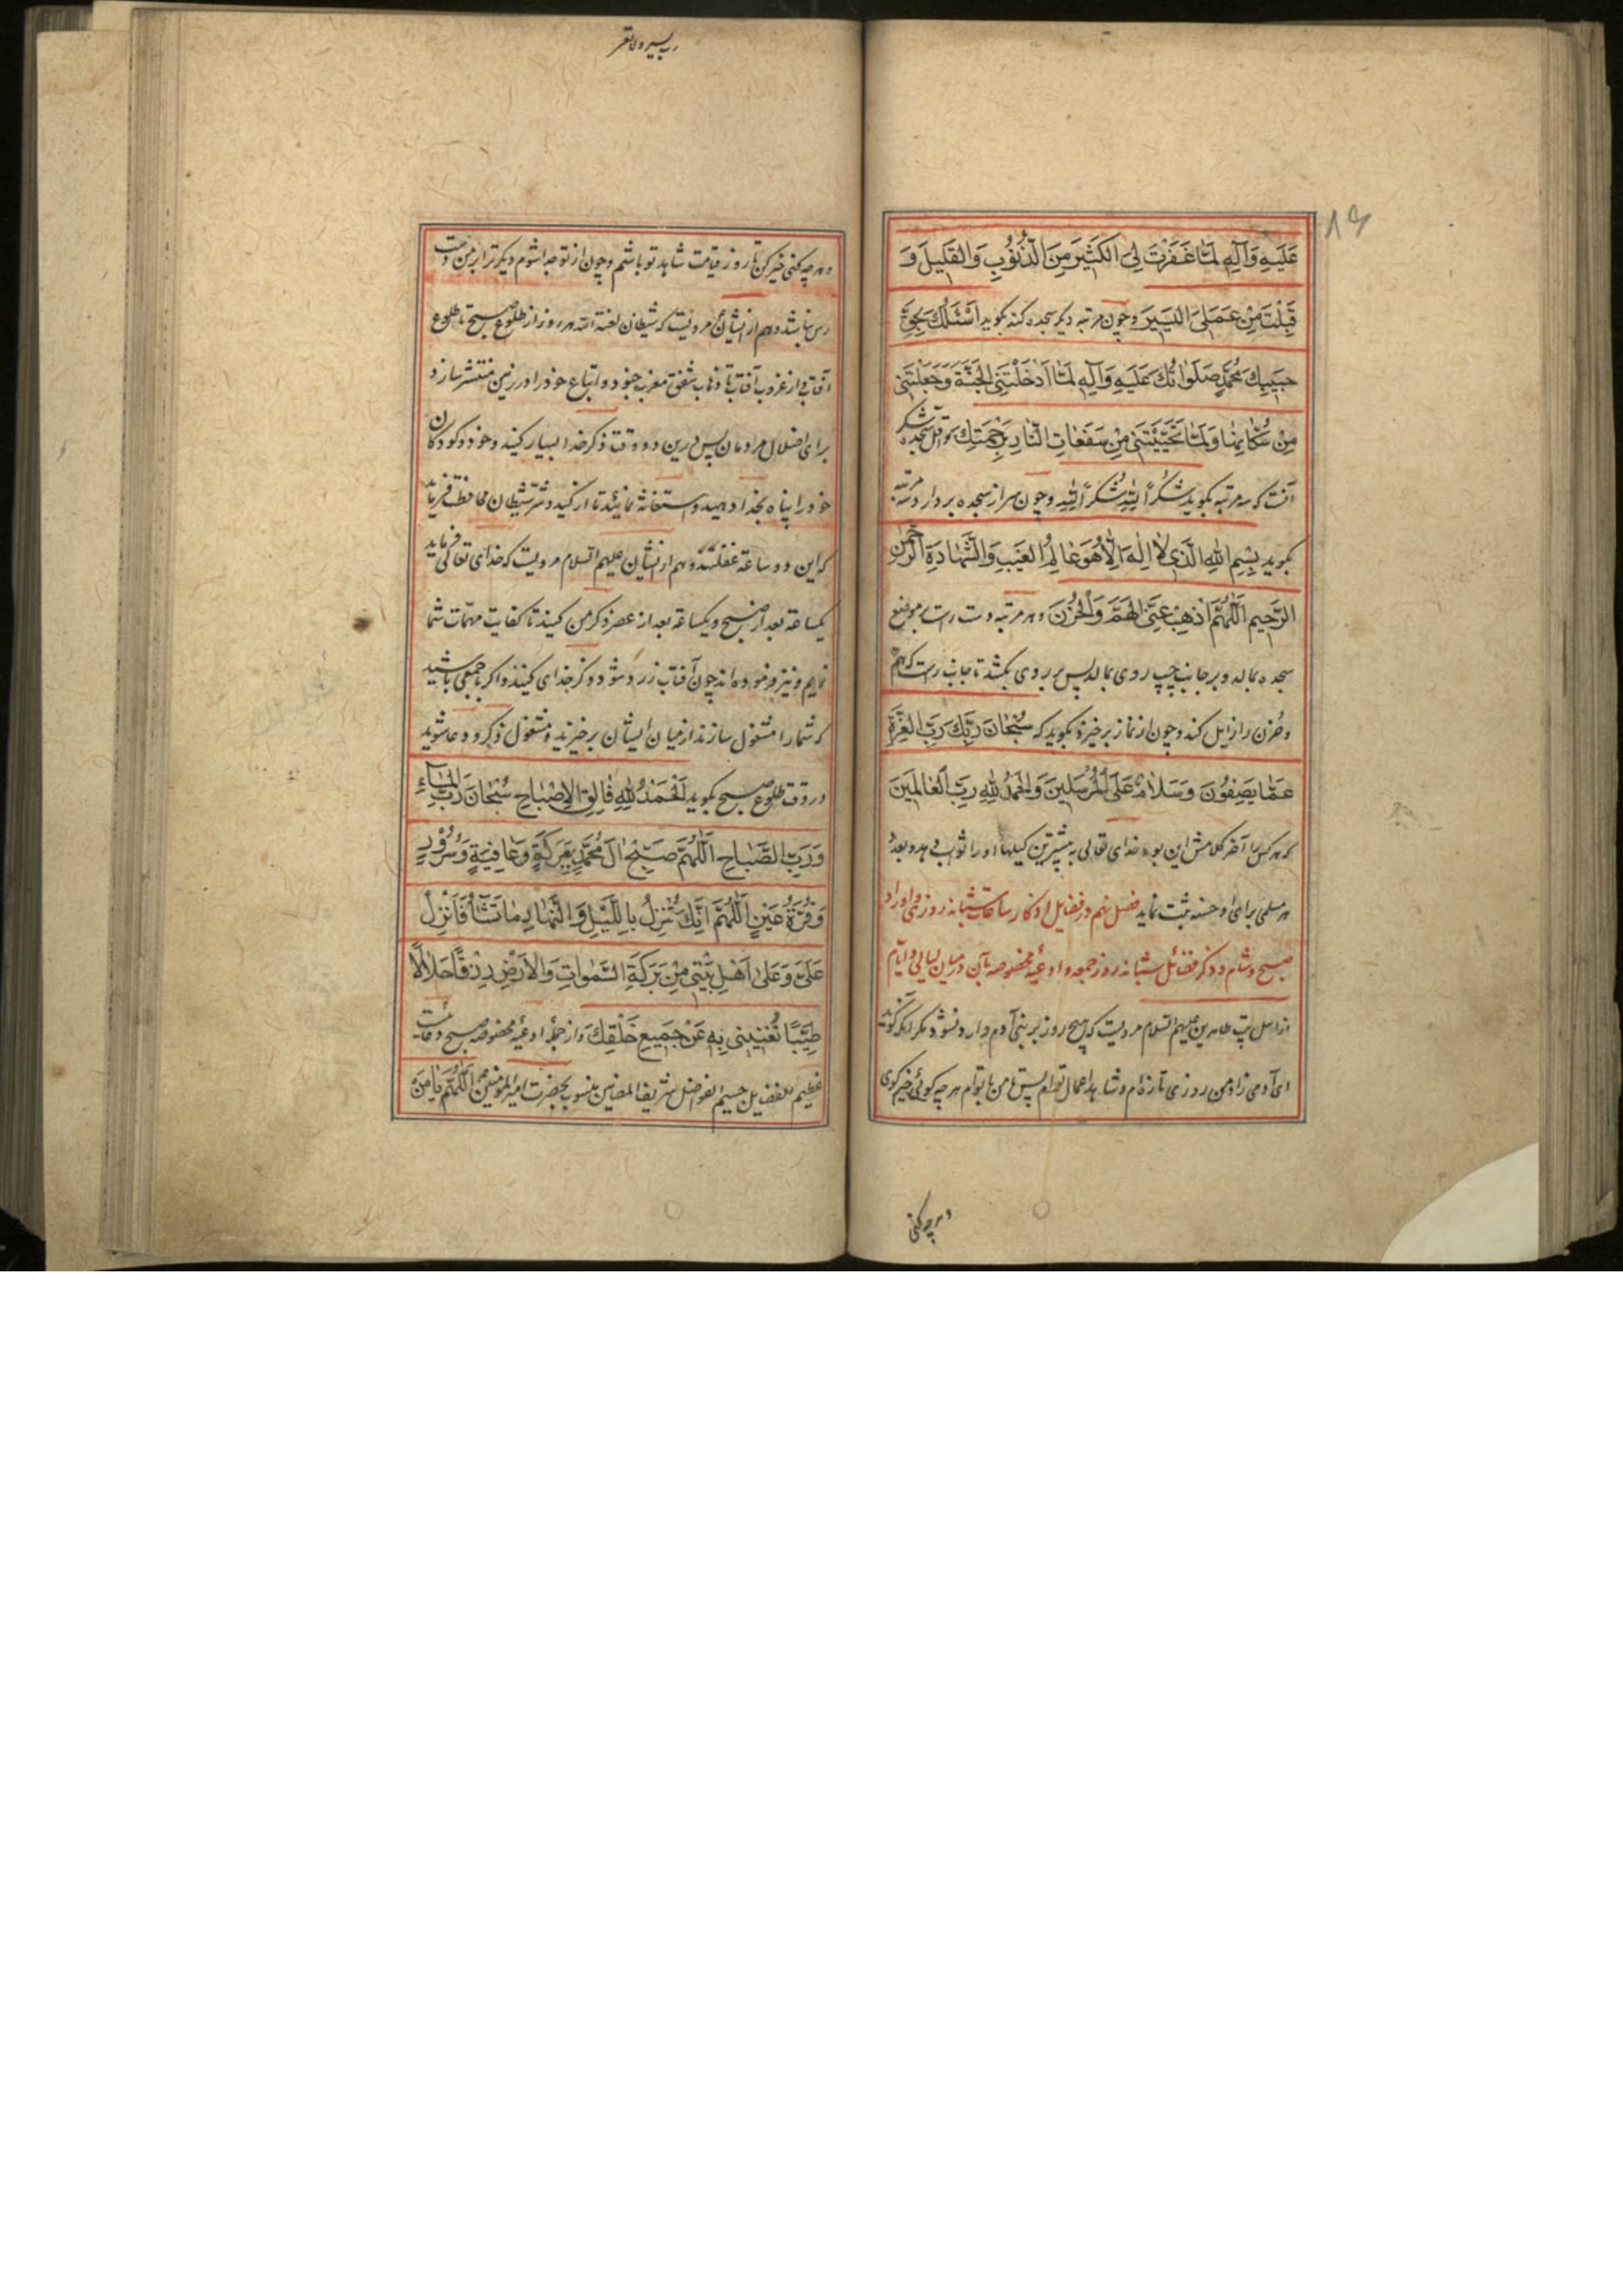 ۸۶
عَلَيْهِ وَآلِهِ لَمَّا غَفَرْتَ لِىَ الْكَثِيْرَ مِنَ الذُّنُوْبِ وَالْقَلِيلَ وَ
قَبِلْتَ مِنْ عَمَلِىَ الْيَسِيْرَ وچون مرتبه دیکر سجده کند بکوید اَسْئَلُكَ بِحَقِّ
حَبِيْبِكَ مُحَمَّدٍ صَلَوٰاتُكَ عَلَيْهِ وَآلِهِ لَمَّا اَدْخَلْتَنِى الْجَنَّةَ وَجَعَلْتَنِى
مِنْ سُكَّانِهٰا وَلَمَّا نَجَّيْتَنِى مِنْ سَفَعٰاتِ النّٰارِ بِرَحْمَتِكَ واقل سجده شکر
آنست که سه مرتبه بکوید شُكْرًا لِلّٰهِ شُكْرًا لِلّٰهِ وچون سر از سجده بردارد سه مرتبه
بکوید بِسْمِ اللّٰهِ الَّذِى لٰا اِلٰهَ اِلّٰا هُوَ عٰالِمُ الْغَيْبِ وَالشَّهٰادَةِ الرَّحْمٰنِ
الرَّحِيْمِ اَللّٰهُمَّ اَذْهِبْ عَنِّى الْهَمَّ وَالْحُزْنَ وهر مرتبه دست راست بر موضع
سجده بمالد وبر جانب چپ روی بمالد پس بر روی بکشد تا جانب راست که هم
وحزن را زایل کند وچون از نماز برخیزد بکوید که سُبْحٰانَ رَبِّكَ رَبِّ الْعِزَّةِ
عَمّٰا يَصِفُوْنَ وَسَلٰامٌ عَلَى الْمُرْسَلِيْنَ وَالْحَمْدُ لِلّٰهِ رَبِّ الْعٰالَمِيْنَ
که هر کس را آخر کلامش این بود خدای تعالی به بیشترین کیلها او را ثواب دهد وبعدد
هر مسلمی برای او حسنه ثبت نماید فصل نهم در فضایل اذکار ساعات شبانه روزی واوراد
صبح وشام وذکر فضائل شبانه روز جمعه وادعیه مخصوصه بآن در میان لیالی وایام
از اهل بیت طاهرین علیهم السلام مرویست که هیچ روز بر بنی آدم وارد نشود مکر آنکه کوید
ای آدمی زاد من روزی تازه ام وشاهد اعمال توام پس با من هر چه کوئی خیر کوی
وهر چه کنی
وهر چه کنی خیر کن تا روز قیامت شاهد تو باشم وچون از تو جدا شوم دیکر ترا بر من دست
رس نباشد وهم از ایشان مرویست که شیطان لعنة الله هر روز از طلوع صبح تا طلوع
آفتاب واز غروب آفتاب تا ذهاب شفق مغرب جنود واتباع خود را در زمین منتشر سازد
برای اضلال مردمان پس درین دو وقت ذکر خدا بسیار کنید وخود وکودکان
خود را پناه بخدا دهید واستغاثه نمائید تا از کید وشر شیطان محافظت فرماید
که این دو ساعة غفلتند وهم از ایشان علیهم السلام مرویست که خدای تعالی فرماید
یکساعة بعد از صبح ویکساعة بعد از عصر ذکر من کنید تا کفایت مهمات شما
نمایم ونیز فرموده اند چون آفتاب زرد شود ذکر خدای کنید واکر با جمعی باشید
که شما را مشغول سازند از میان ایشان برخیزید ومشغول ذکر ودعا شوید
ودر وقت طلوع صبح بکوید اَلْحَمْدُ لِلّٰهِ فٰالِقِ الْاِصْبٰاحِ سُبْحٰانَ رَبِّ الْمَسٰآءِ
وَرَبِّ الصَّبٰاحِ اَللّٰهُمَّ صَبِّحْ آلَ مُحَمَّدٍ بِبَرَكَةٍ وَعٰافِيَةٍ وَسُرُوْرٍ
وَقُرَّةِ عَيْنٍ اَللّٰهُمَّ اِنَّكَ تُنْزِلُ بِاللَّيْلِ وَالنَّهٰارِ مٰا تَشٰآءُ فَاَنْزِلْ
عَلَىَّ وَعَلٰى اَهْلِ بَيْتِى مِنْ بَرَكَةِ السَّمٰوٰاتِ وَالْاَرْضِ رِزْقًا حَلٰالًا
طَيِّبًا تُغْنِيْنِى بِهِ عَنْ جَمِيْعِ خَلْقِكَ واز جمله ادعیه مخصوصه صبح دعائیست
عظیم الفضایل جسیم الفواضل شریف المضامین منسوب بحضرت امیر المؤمنین اَللّٰهُمَّ يٰا مَنْ